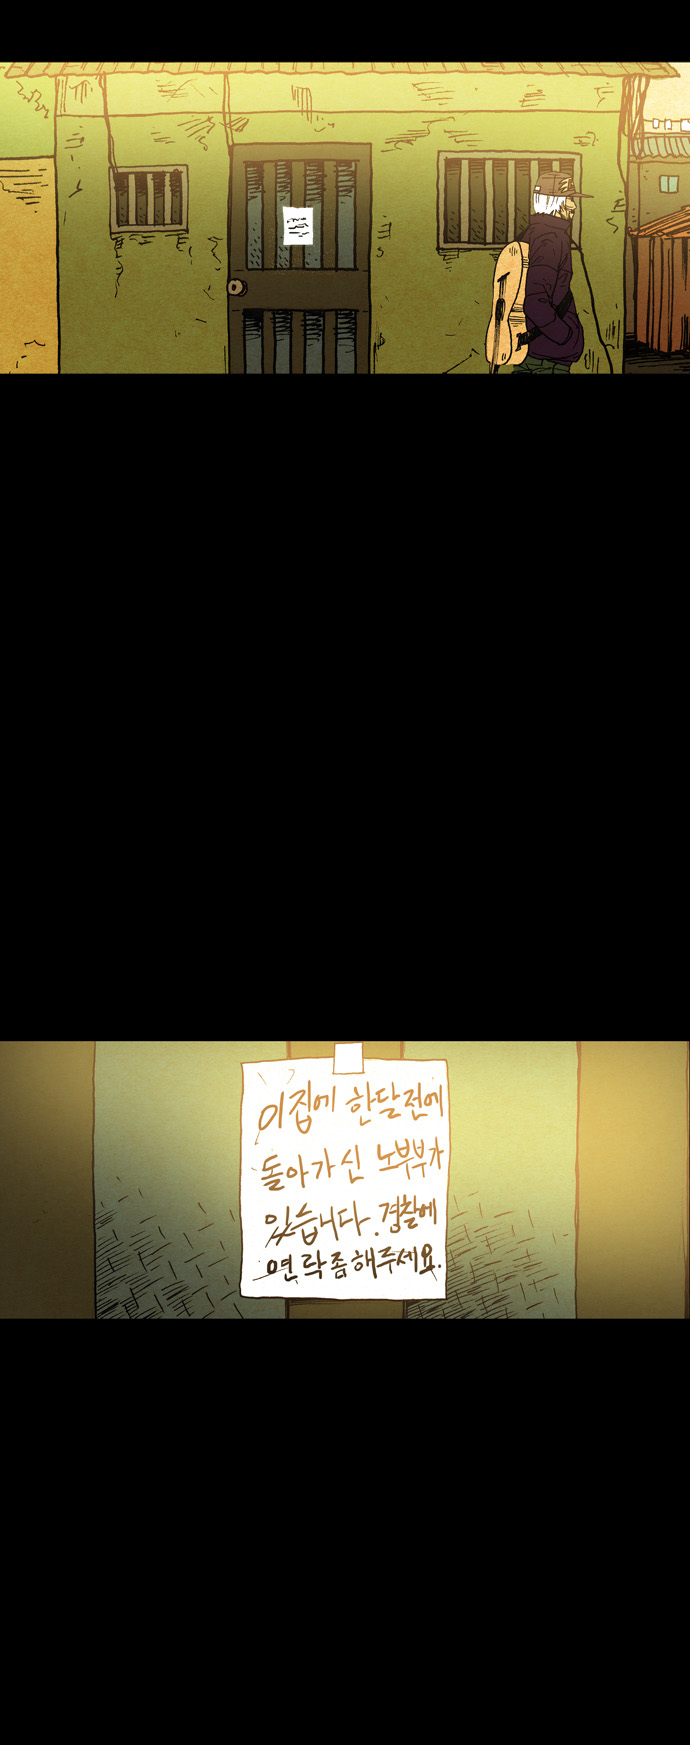 이집에 한달전에
돌아가신 노부부가
있습니다. 경찰에
연락좀해주세요.